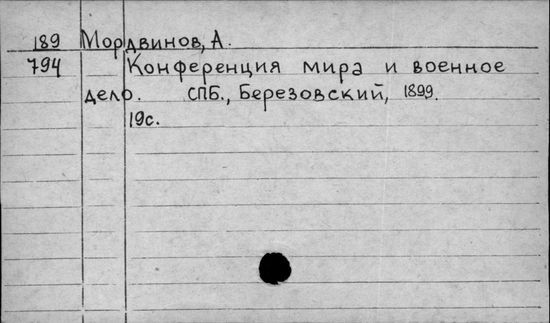 189 Мордвинов, А.
794 Конференция мира и военное
дело. СПБ., Березовский, 1899.
19с.